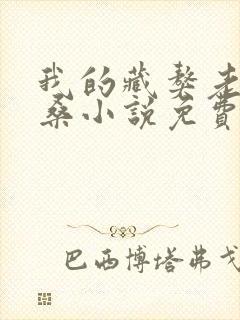 我的藏獒走
桑小說免費
巴西博塔弗戈